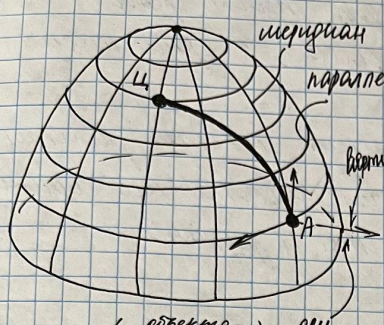 меридиан
паралле
Ц
верти
А
объекта